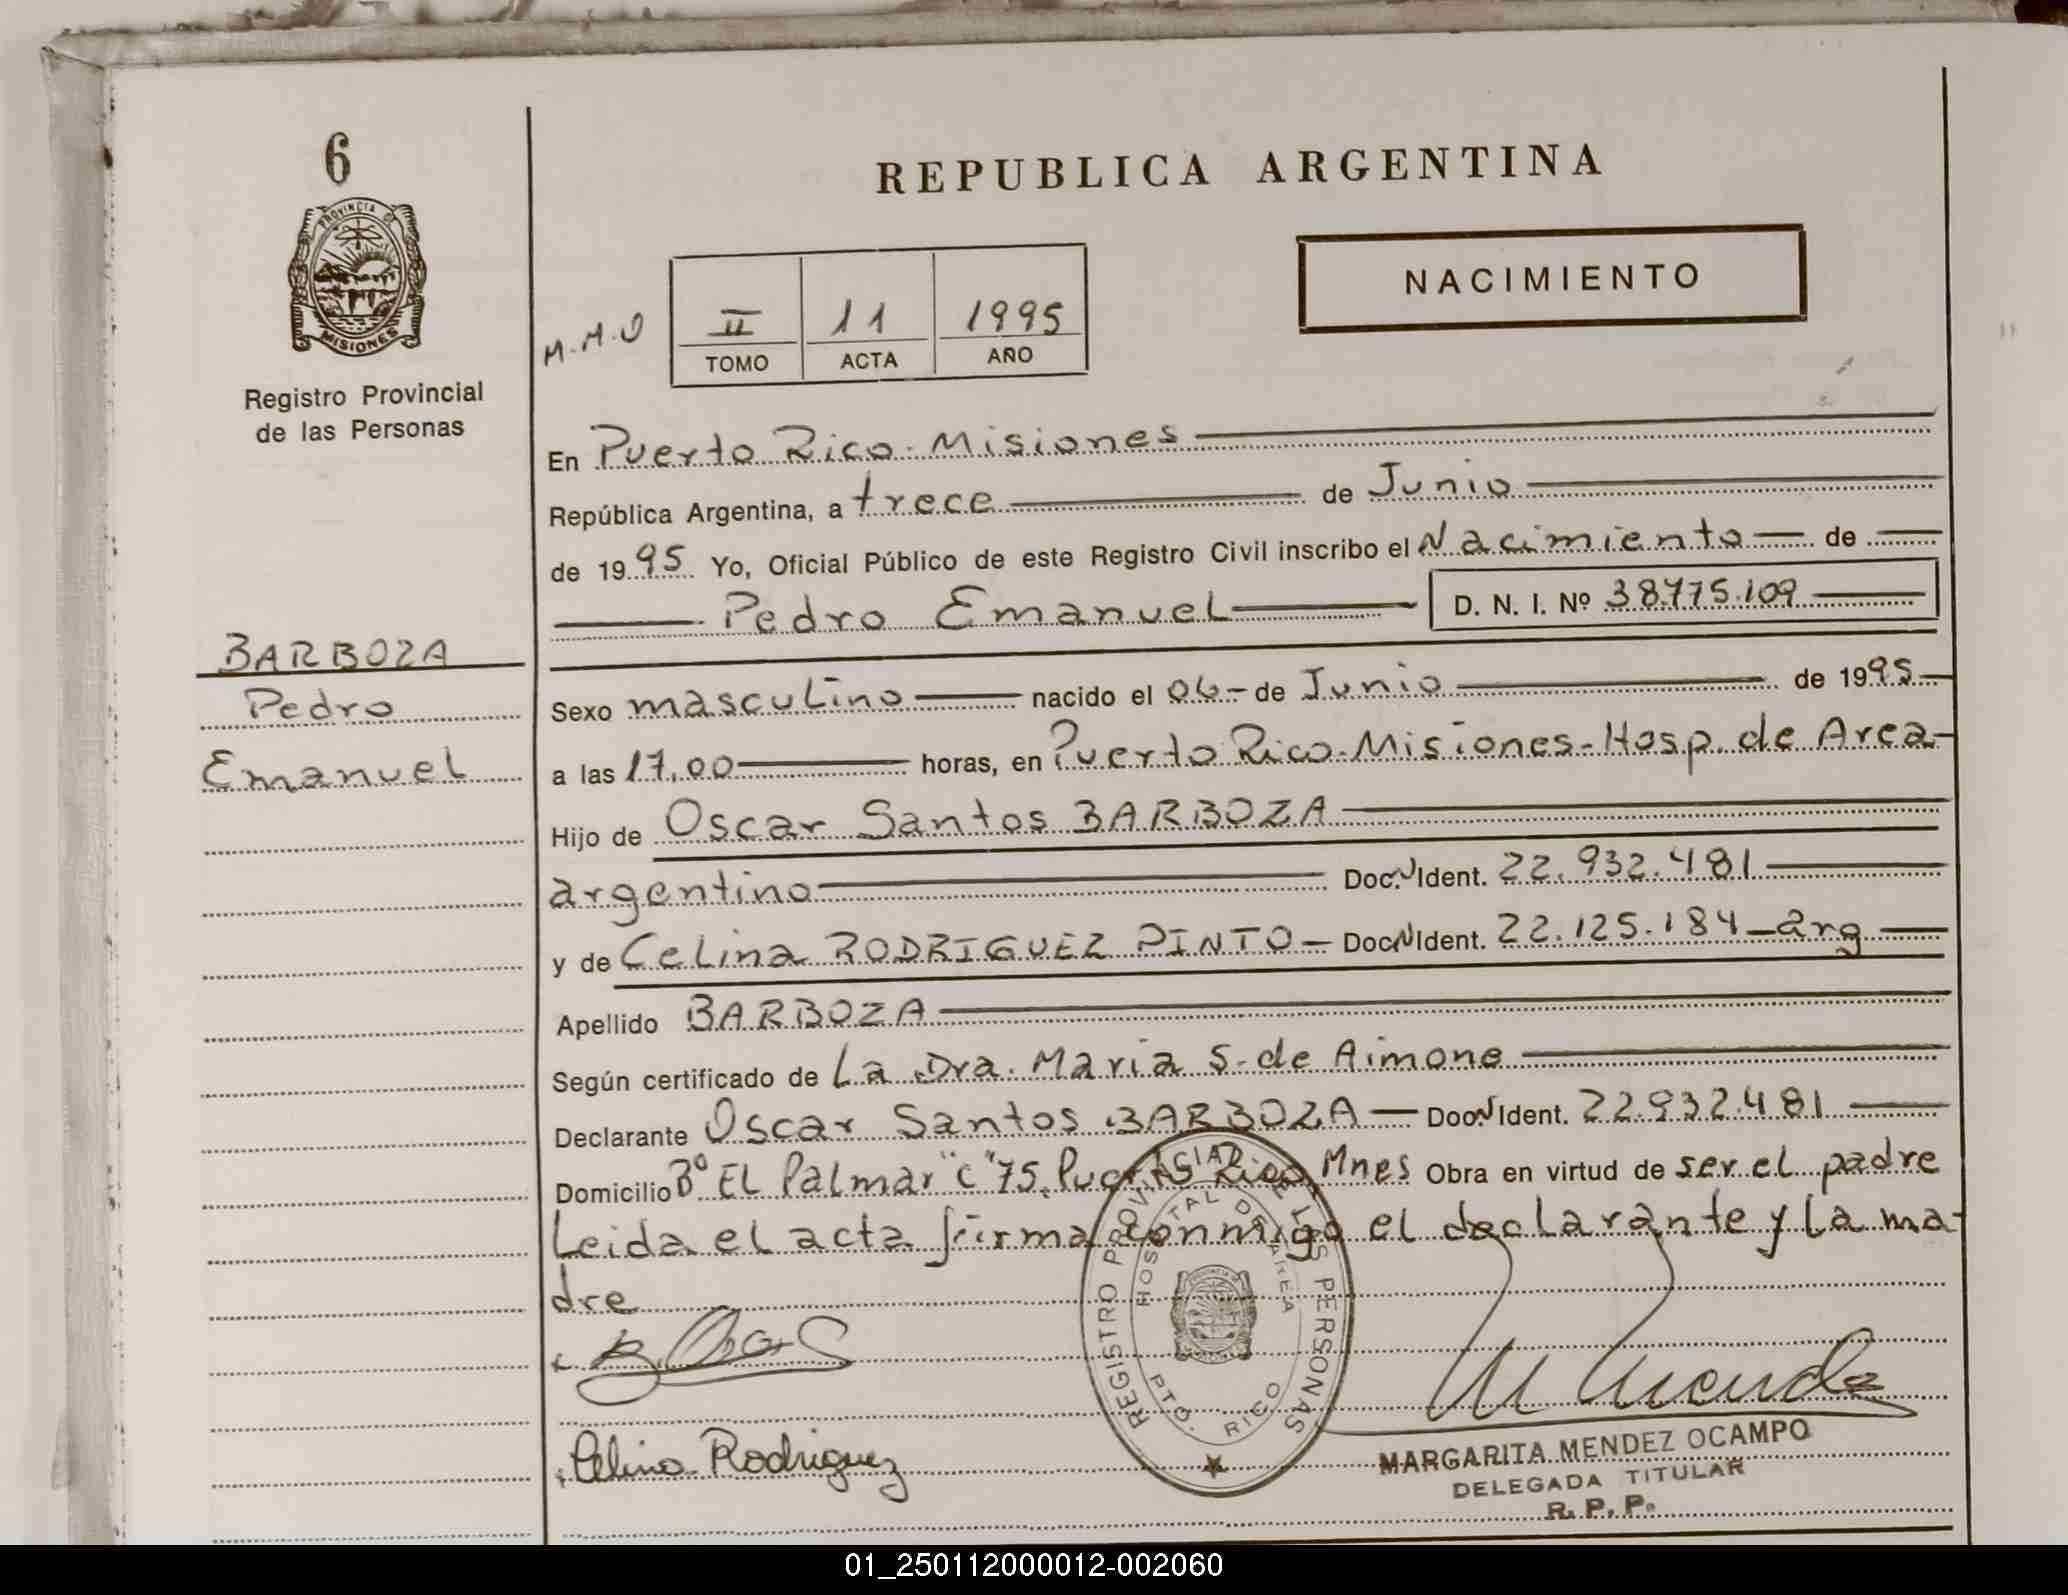 6
PROVINCIA D
MISIONES
Registro Provincial
de las Personas
BARBOZA
Pedro
Emanuel
REPUBLICA ARGENTINA
NACIMIENTO
M.M.O
II 11 1995
TOMO ACTA AÑO
En Puerto Rico - Misiones
República Argentina, a trece de Junio
de 1995 Yo, Oficial Público de este Registro Civil inscribo el Nacimiento de
Pedro Emanuel D. N. I. Nº 38.775.109
Sexo masculino nacido el 06 - de Junio de 1995
a las 17,00 horas, en Puerto Rico - Misiones - Hosp. de Area
Hijo de Oscar Santos BARBOZA
argentino Doc. N Ident. 22.932.481
y de Celina RODRIGUEZ PINTO - Doc N Ident. 22.125.184 - arg
Apellido BARBOZA
Según certificado de La Dra. Maria S. de Aimone
Declarante Oscar Santos BARBOZA - Doc. N Ident. 22.932.481
Domicilio Bº El Palmar "C" 75. Puerto Rico Mnes Obra en virtud de ser el padre
Leida el acta firma conmigo el declarante y la ma-
dre
REGISTRO PROVINCIAL DE LAS PERSONAS
HOSPITAL DE AREA
PTO. RICO
Celina Rodriguez
M Mendez
MARGARITA MENDEZ OCAMPO
DELEGADA TITULAR
R. P. P.
01_250112000012-002060